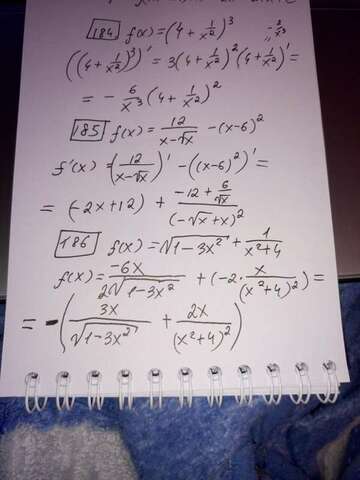 184 f(x) = (4 + 1/x²)³
((4 + 1/x²)³)' = 3(4 + 1/x²)²(4 + 1/x²)' =
= - 6/x³ (4 + 1/x²)²
185 f(x) = 12/(x-√x) - (x-6)²
f'(x) = (12/(x-√x))' - ((x-6)²)' =
= (-2x+12) + (-12 + 6/√x)/(-√x+x)²
186 f(x) = √(1-3x²) + 1/(x²+4)
f(x) = -6x/(2√(1-3x²)) + (-2 · x/(x²+4)²) =
= -(3x/√(1-3x²) + 2x/(x²+4)²)